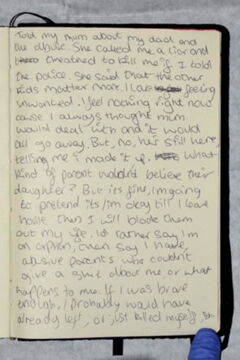 Told my mum about my dad and
the abuse. She called me a liar and
threatned to kill me if I told
the police. She said that the other
kids matter more. I leave feeling
unwanted. I feel nothing right now
cause I always thought mum
would deal with and it would
all go away. But, no, he's still here,
telling me I made it up. What
kind of parent wouldn't believe their
daughter? But its fine, Im going
to pretend its/im okay till I leave
home then I will block them
out my life. Id rather say Im
an orphan, than say I have,
abusive parents who couldn't
give a shit about me, or what
happens to me. If I was brave
enough, I probably would have
already left, or just killed myself